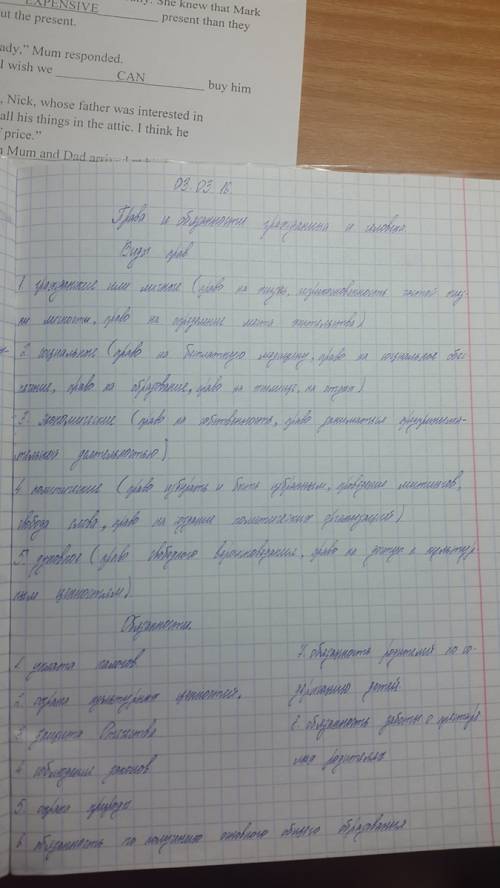 EXPENSIVE
She knew that Mark
present than they
ut the present.
ady,” Mum responded.
I wish we CAN buy him
, Nick, whose father was interested in
all his things in the attic. I think he
price.”
Mum and Dad
03.03.16
Права и обязанности гражданина и человека
Виды прав
1. гражданские или личные (право на жизнь, неприкосновенность частной жиз-
ни личности, право на определение места жительства)
2. социальные (право на бесплатную медицину, право на социальное обес-
печение, право на образование, право на жилище, на отдых)
3. экономические (право на собственность, право заниматься предпринима-
тельской деятельностью)
4. политические (право избирать и быть избранным, проведение митингов,
свобода слова, право на создание политических организаций)
5. духовные (право свободного вероисповедания, право на доступ к культур-
ным ценностям)
Обязанности.
1. уплата налогов
2. охрана культурных ценностей.
3. защита Отечества
4. соблюдение законов
5. охрана природы
6. обязанность по получению основного общего образования
7. обязанность родителей по со-
держанию детей
8. обязанность заботы о престаре
лых родителях